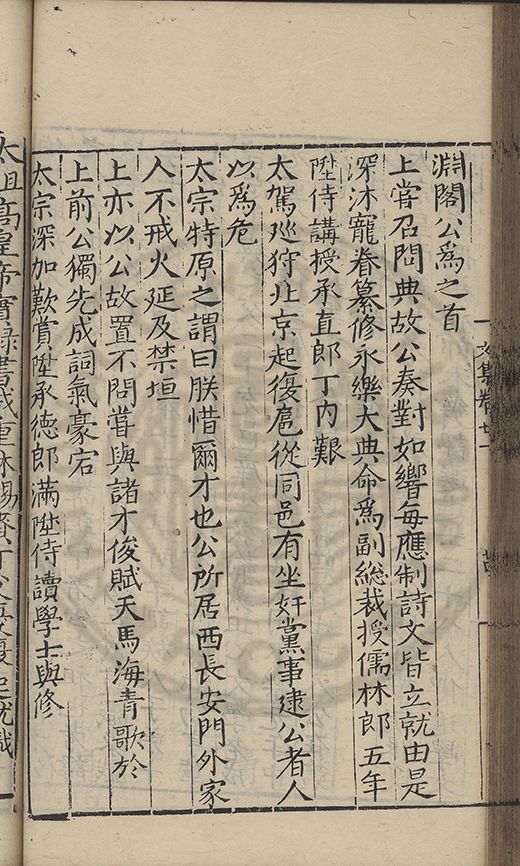 文集卷廿一
淵閣公爲之首
上嘗召問典故公奏對如響每應制詩文皆立就由是
深沐寵眷纂修永樂大典命爲副総裁授儒林郎五年
陞侍講授承直郎丁内艱
太駕廵狩北京起復扈從同邑有坐奸黨事逮公者人
以爲危
太宗特原之謂曰朕惜爾才也公所居西長安門外家
人不戒火延及禁垣
上亦以公故置不問嘗與諸才俊賦天馬海青歌於
上前公獨先成詞氣豪宕
太宗深加歎賞陞承德郎滿陞侍讀學士與修
太祖高皇帝實録書成重沐賜賚丁父憂起就職